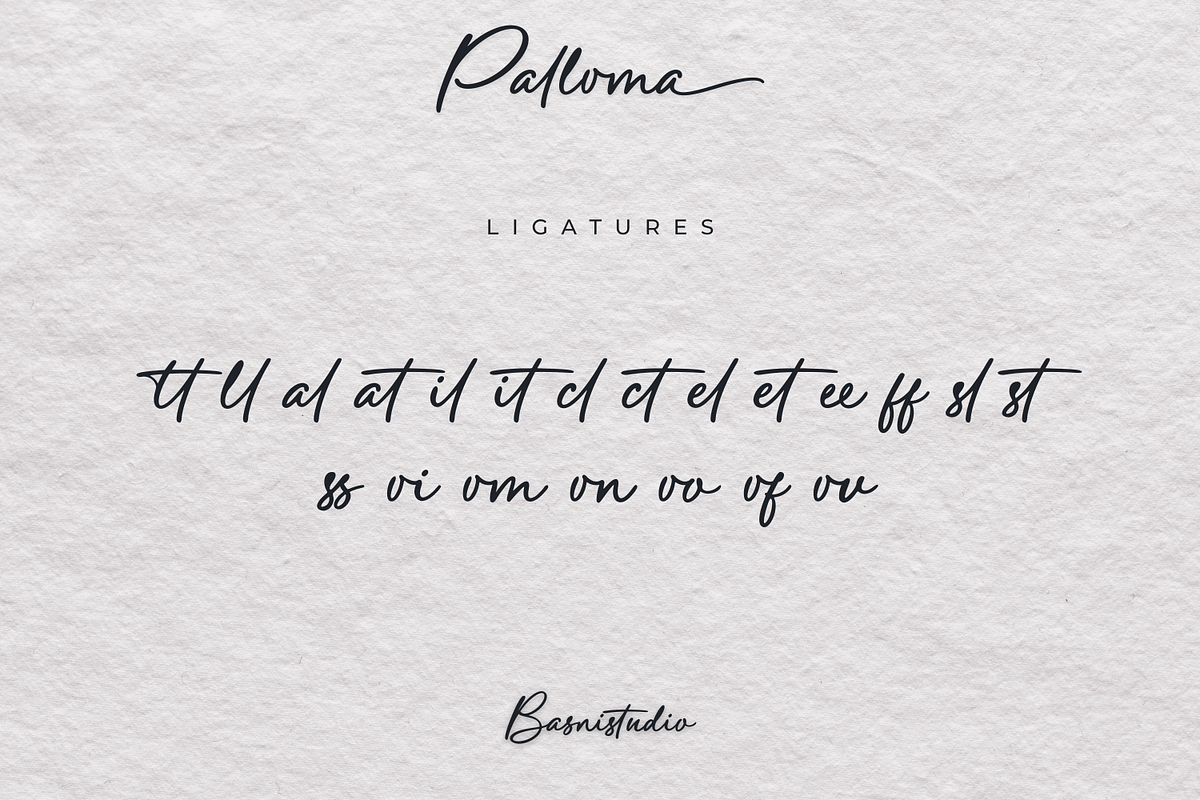 Palloma
LIGATURES
tt ll al at il it cl ct el et ee ff sl st
ss oi om on oo of ov
Basnistudio